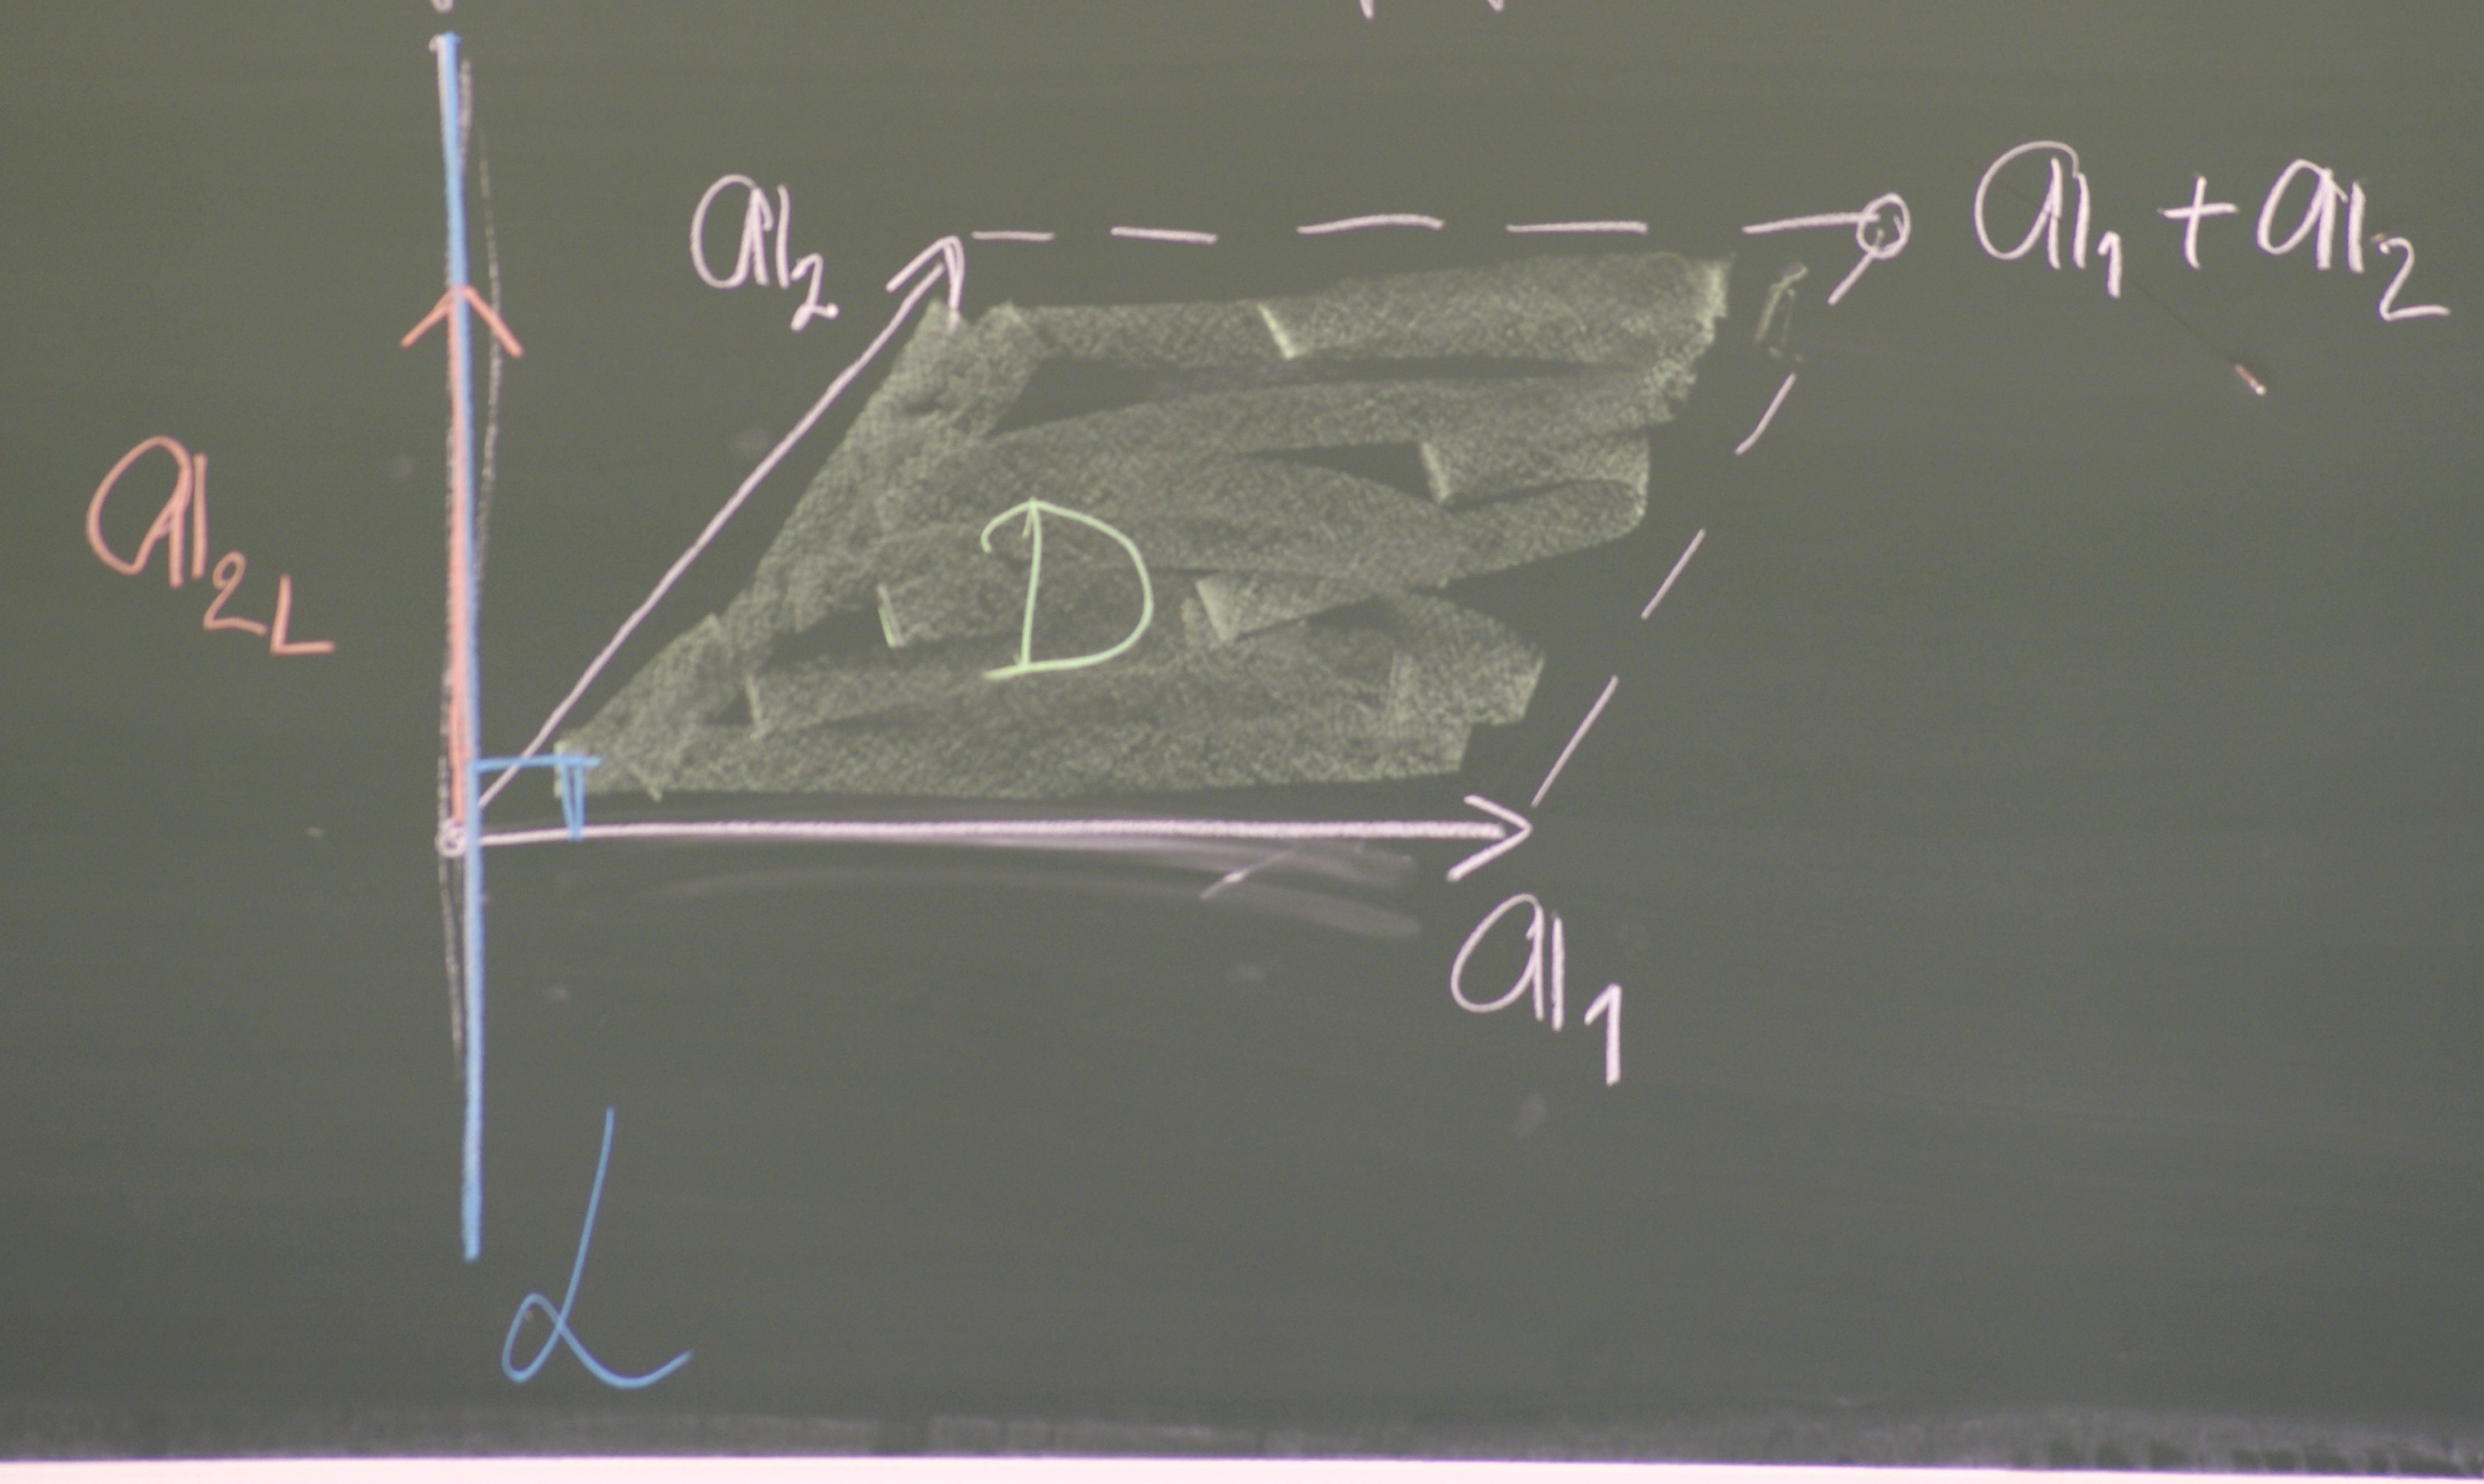 a₂ a₁ + a₂
a₂L
D
a₁
L